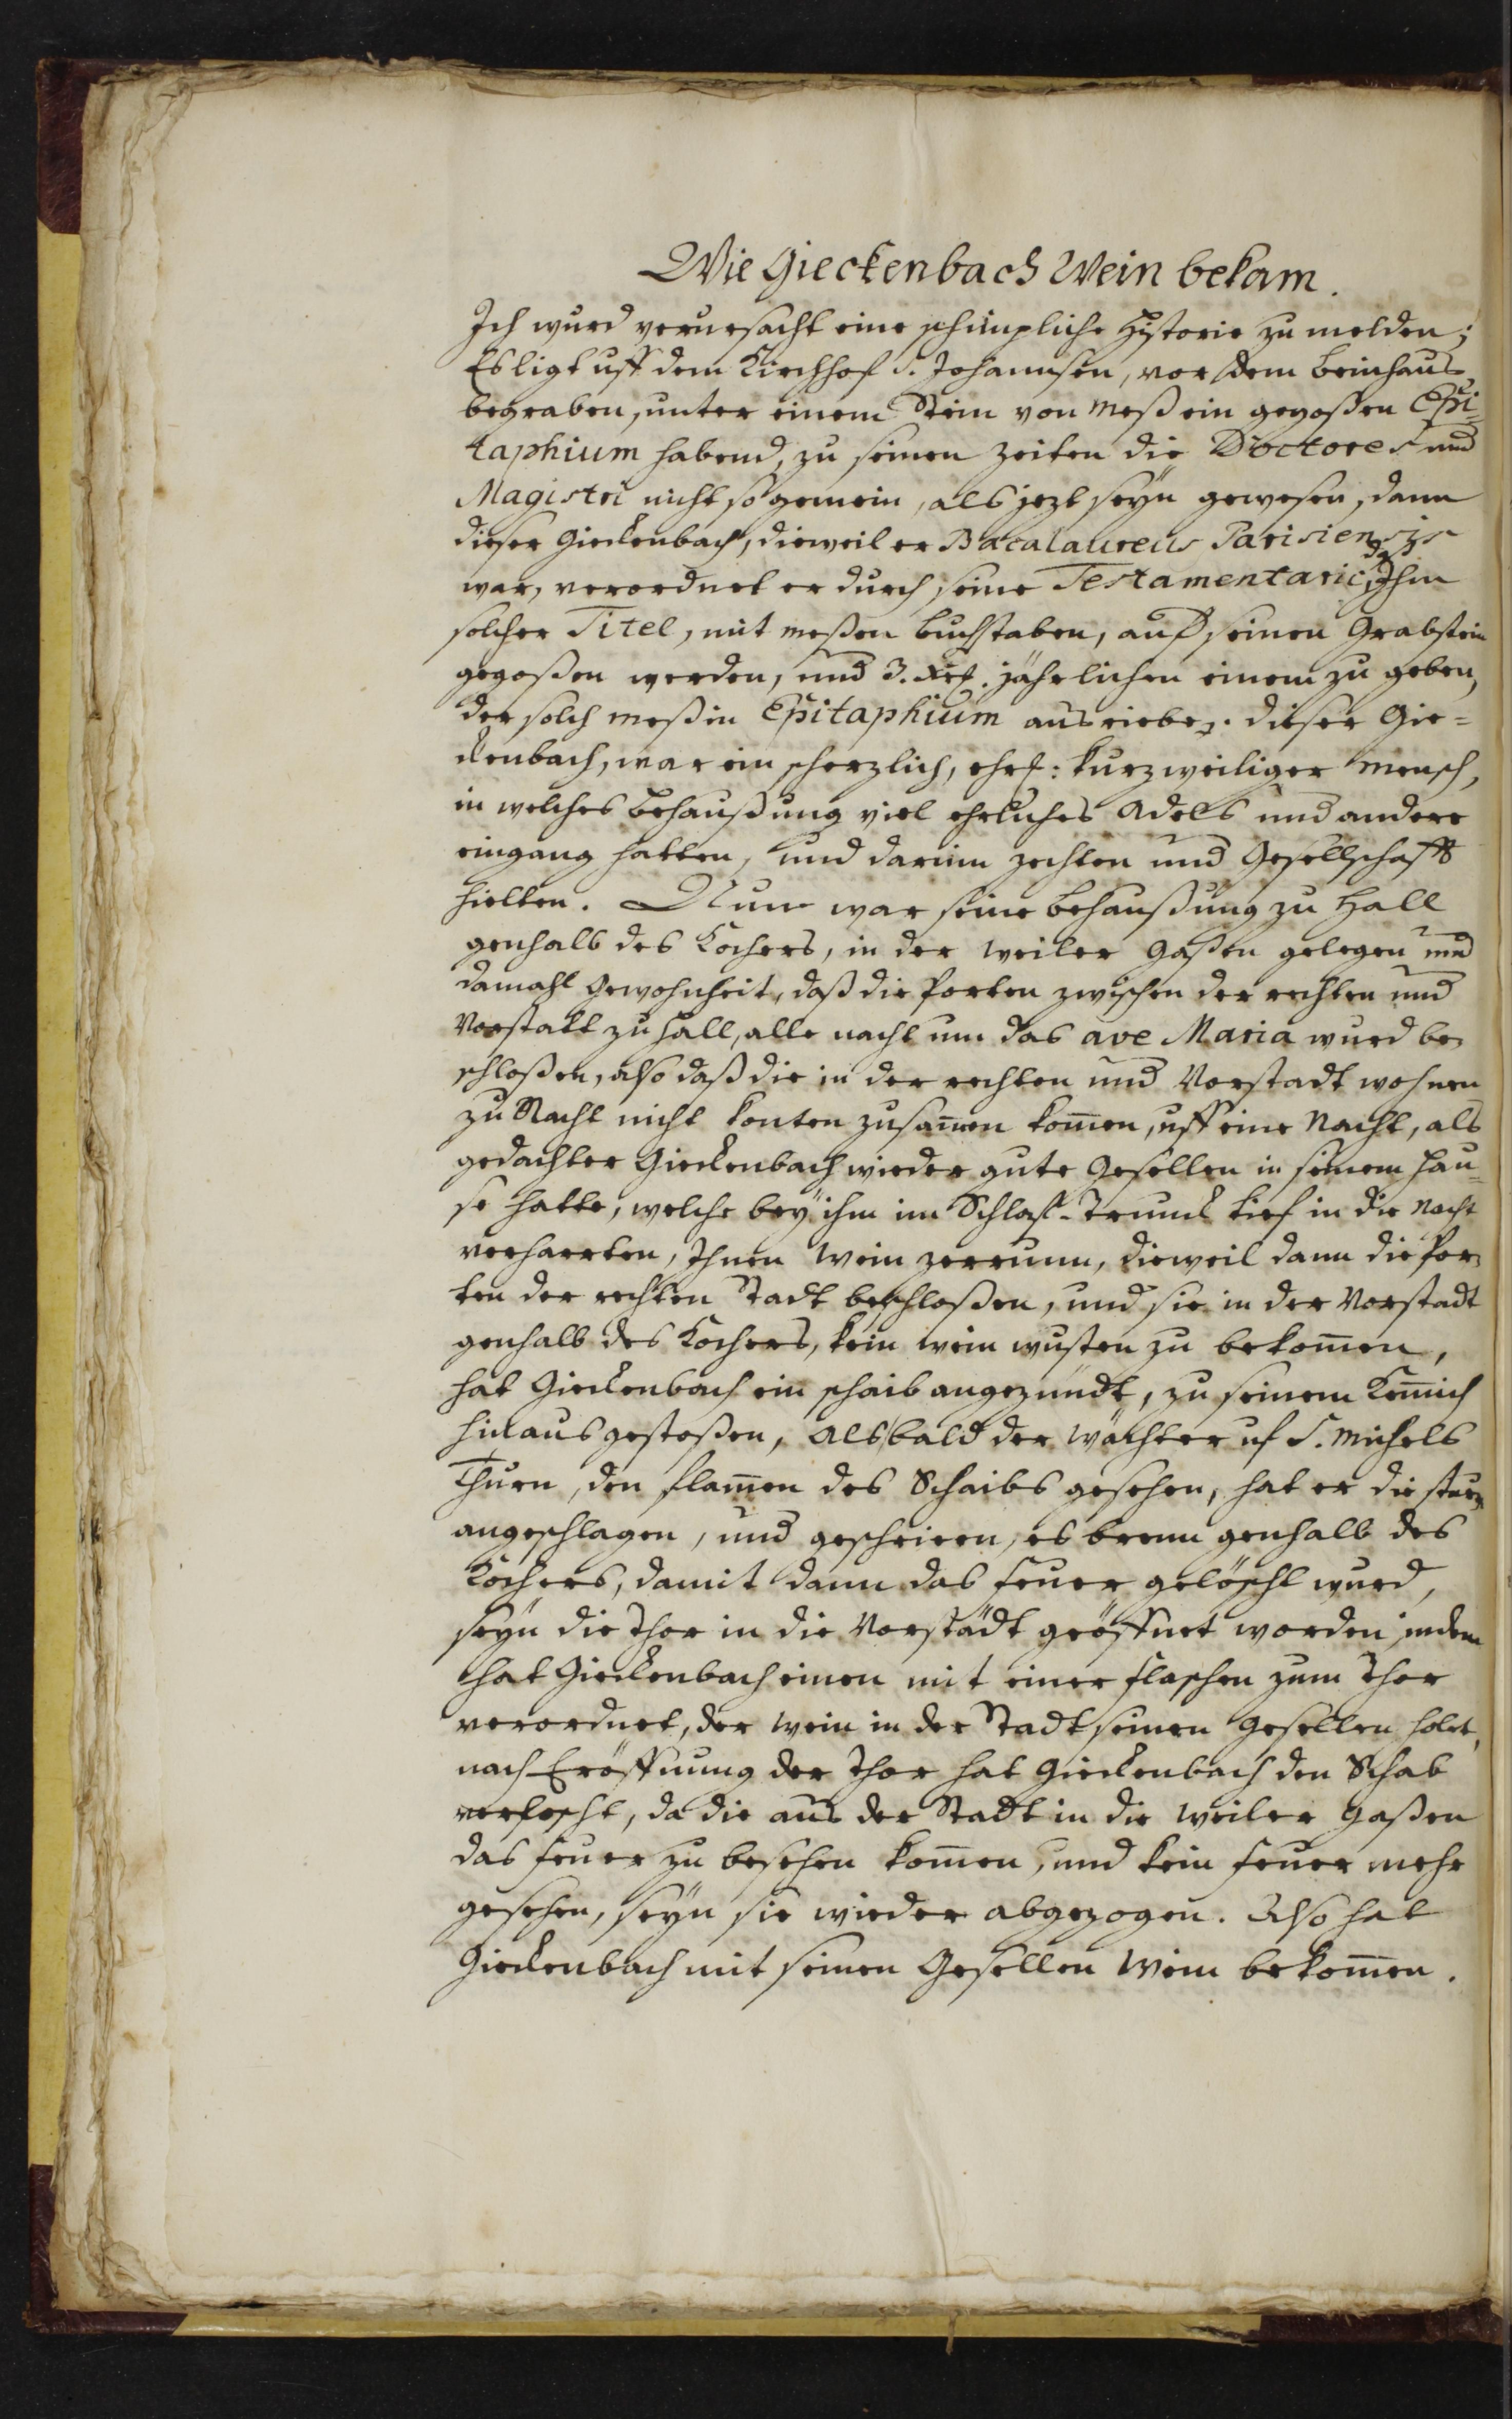 Wie Gieckenbach Wein bekam.
Ich wurd verursacht eine schimpliche Hystorie zu melden;
Es ligt uff dem Kirchhof S. Johannsen, vor dem beinhaus
begraben, unter einem Stein von Meß ein gegoßen Epi-
taphium habend, zu seinen zeiten die Doctores und
Magistri nicht so gemein, als jezt seyn gewesen, dann
dieser Gieckenbach, dieweil er Bacalaureus Parisiensis
war, verordnet er durch seine Testamentarii, Ihm
solcher Titel, mit meßen buchstaben, auf seinen Grabstein
gegoßen werden, und 3. jährlichen einem zu geben,
der solch meßin Epitaphium ausriebe. dieser Gie=
ckenbach, war ein scherzlich, ehrl: kurzweiliger Mensch,
in welches behaußung viel ehrliches Adels und andere
eingang hatten, und darinn zechten und Gesellschafft
hielten. Nun war seine behaußung zu Hall
genhalb des Kochers, in der Weiler Gaßen gelegen und
damahl gewohnheit, daß die Porten zwischen der rechten und
Vorstatt zu Hall, alle nacht um das ave Maria wurd be=
schloßen, also daß die in der rechten und Vorstadt wohnen
zu Nacht nicht konten zusam̄en kom̄en, uff eine Nacht, als
gedachter Gieckenbach wieder gute Gesellen in seinem Hau=
se hatte, welche bey ihm im Schlaf-Trunck tief in die Nacht
verharrten, Ihnen Wein zerrunn, dieweil dann die Por=
ten der rechten Stadt beschloßen, und sie in der Vorstadt
genhalb des Kochers, kein wein wusten zu bekom̄en,
hat Gieckenbach ein schaib angezündt, zu seinem Kem̄ich
hinaus gestoßen, Alsbald der Wächter uf S. Michels
Thurn, den flam̄en des Schaibs gesehen, hat er die sturm
angeschlagen, und geschrieen, es brenn genhalb des
Kochers, damit dann das feuer gelöscht wurd,
seyn die Thor in die Vorstädt geöffnet worden, indem
hat Gieckenbach einen mit einer flaschen zum Thor
verordnet, der Wein in der Stadt seinen Gesellen holet,
nach Eröffnung der Thor hat Gieckenbach den Schab
verlescht, da die aus der Stadt in die Weiler Gaßen
das feuer zu besehen kom̄en, und kein feuer mehr
gesehen, seyn sie wieder abgezogen. Also hat
Gieckenbach mit seinen Gesellen Wein bekom̄en.